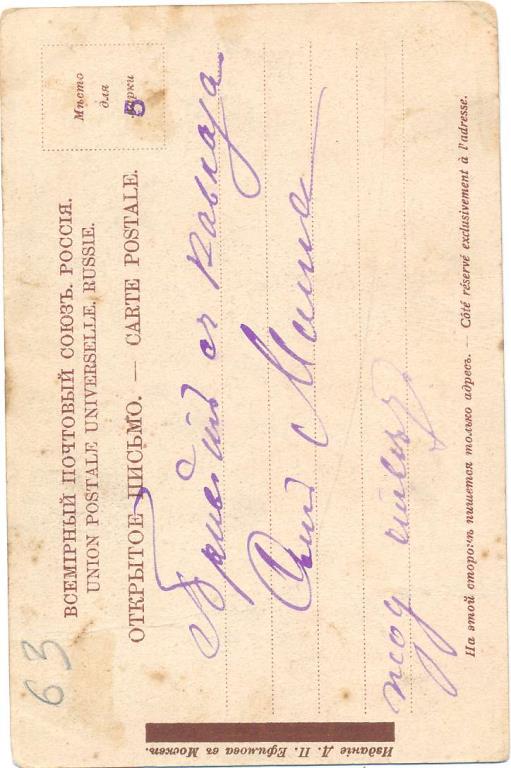 Мѣсто
для
марки
5
ВСЕМІРНЫЙ ПОЧТОВЫЙ СОЮЗЪ. РОССІЯ.
UNION POSTALE UNIVERSELLE. RUSSIE.
ОТКРЫТОЕ ПИСЬМО. — CARTE POSTALE.
Привѣтъ съ Кавказа
На этой сторонѣ пишется только адресъ. — Côté réservé exclusivement à l'adresse.
Изданіе Д. П. Ефимова въ Москвѣ.
63